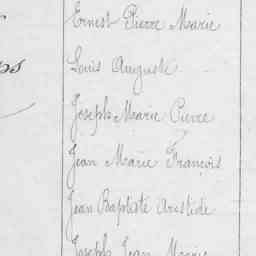 Ernest Pierre Marie
Louis Auguste
Joseph Marie Pierre
Jean Marie François
Jean Baptiste Aristide
Joseph Jean Marie